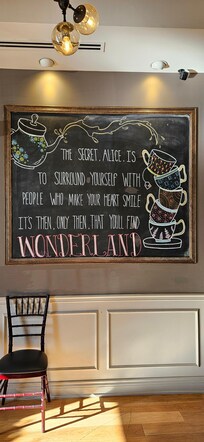 THE SECRET, ALICE, IS
TO SURROUND YOURSELF WITH
PEOPLE WHO MAKE YOUR HEART SMILE
IT'S THEN, ONLY THEN, THAT YOU'LL FIND
WONDERLAND